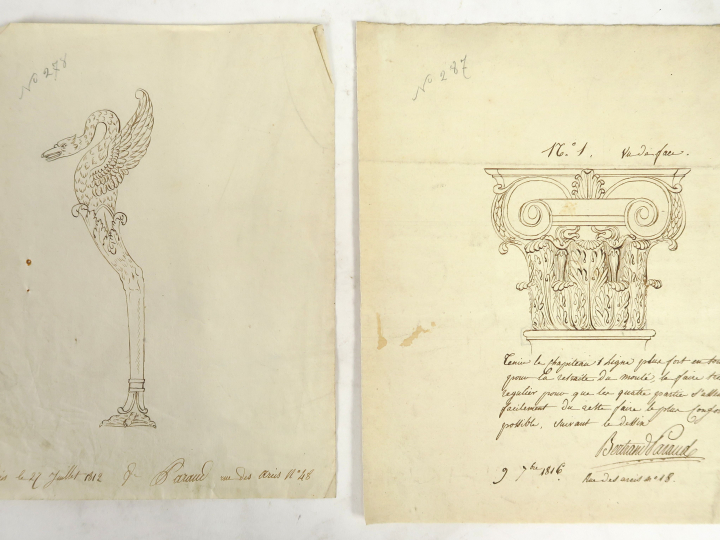 No 278
is le 27 Juillet 1812 Paraud rue des arcis No 48
No 287
No. 1. Vu de face.
Tenir le chapiteau 1 ligne plus fort en tou
pour la retraite du moule, le faire
regulier pour que les quatre partie
facilement du reste faire le plus Confor
possible, suivant le dessin
Bertrand Paraud
9 7bre 1816. Rue des arcis no 18.